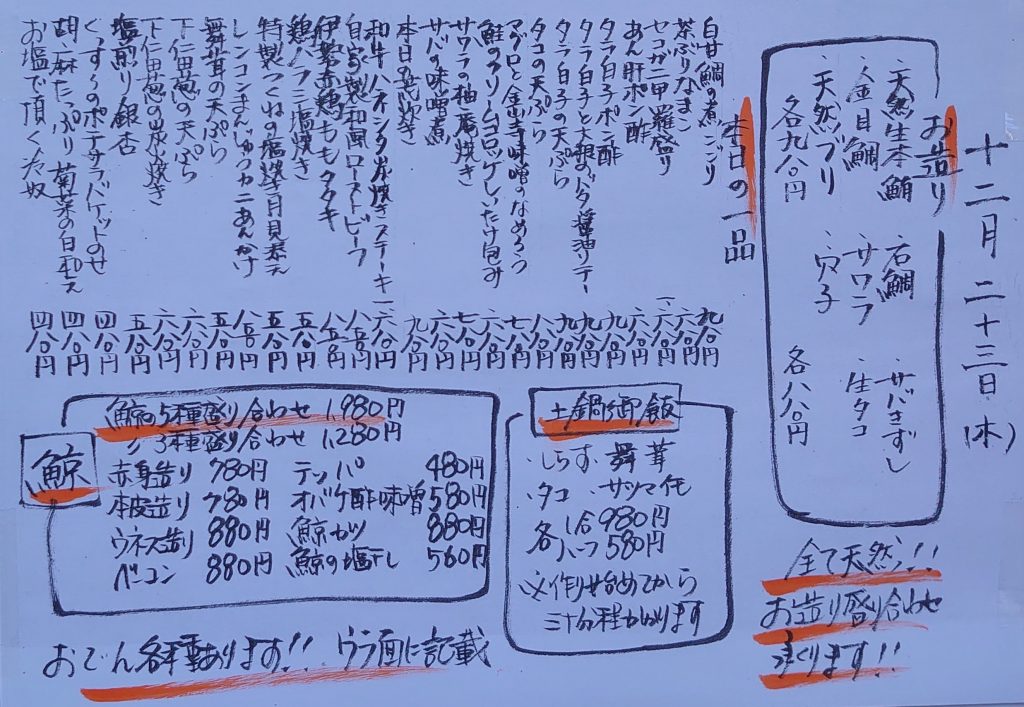 十二月二十三日(木)
お造り
・天然生本鮪 ・石鯛 ・サバきずし
・金目鯛 ・サワラ ・生タコ
・天然ブリ ・穴子
各九八〇円 各八八〇円
全て天然!!
お造り盛り合わせ
承ります!!
本日の一品
白甘鯛の煮こごり 九八〇円
茶ぶりなまこ 六八〇円
セコガニ甲羅盛り
あん肝ポン酢
タラ白子ポン酢 九八〇円
タラ白子と大根のバタ醤油ソテー 九八〇円
タラ白子の天ぷら 九八〇円
タコの天ぷら 八八〇円
マグロと金山寺味噌のなめろう 七八〇円
鮭のクリームコロッケしいたけ包み 六八〇円
サワラの柚庵焼き 七八〇円
サバの味噌煮 九八〇円
本日の荒炊き 九八〇円
和牛ハネシタ炭焼きステーキ 一六八〇円
自家製和風ローストビーフ 八八〇円
伊勢赤鶏ももタタキ 八五〇円
鶏ハラミ塩焼き 五八〇円
特製つくねの塩焼き月見添え 五八〇円
レンコンまんじゅうカニあんかけ 八八〇円
舞茸の天ぷら 五八〇円
下仁田葱の天ぷら 六八〇円
下仁田葱の炭焼き 六八〇円
塩煎り銀杏 五八〇円
ぐっすうのポテサラバゲットのせ 四八〇円
胡麻たっぷり菊菜の白和え 四八〇円
お塩で頂くざる奴 四八〇円
土鍋御飯
・しらす ・舞茸
・タコ ・サツマ芋
各一合 980円
各ハーフ 580円
※作り始めてから
三十分程かかります
鯨
鯨の5種盛り合わせ 1,980円
〃 3種盛り合わせ 1,280円
赤身造り 780円 テッパ 480円
本皮造り 780円 オバケ酢味噌 580円
ウネス造り 880円 鯨カツ 880円
ベーコン 880円 鯨の塩干し 560円
おでん各種あります!! ウラ面に記載